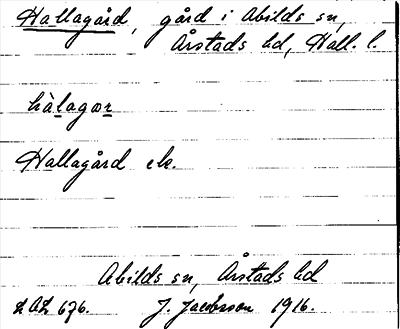 Hallagård, gård i Abilds sn,
Årstads hd, Hall. l.
hàlagær
Hallagård ek.
Abilds sn, Årstads hd
LAL 676. J. Jacobsson 1916.